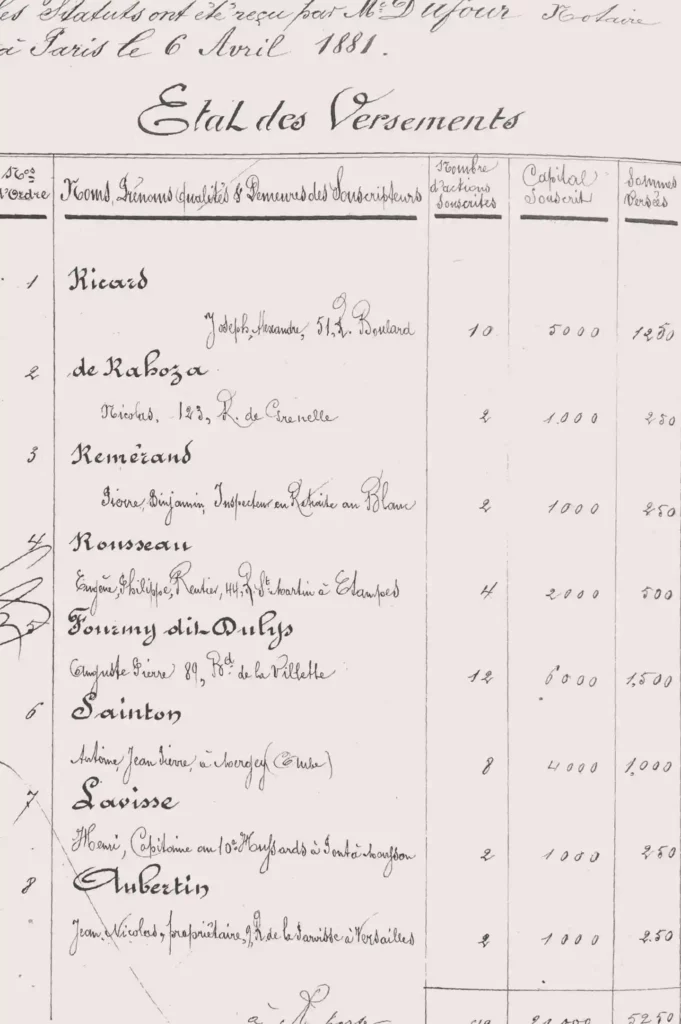 es Statuts ont été reçu par Me Dufour Notaire
à Paris le 6 Avril 1881.
Etat des Versements
Nos d'Ordre
Noms, Prénoms Qualités & Demeures des Souscripteurs
Nombre d'actions Souscrites
Capital Souscrit
Sommes Versées
1 Ricard
Joseph, Alexandre, 51, R. Boulard 10 5000 1250
2 de Rahoza
Nicolas, 123, R. de Grenelle 2 1.000 250
3 Remérand
Pierre, Binjamin, Inspecteur en Retraite au Blanc 2 1000 250
4 Rousseau
Eugène, Philippe, Rentier, 44, R. St. Martin à Etampes 4 2000 500
5 Fourmy dit Dulys
Auguste Pierre 89, Bd. de la Villette 12 6000 1,500
6 Sainton
Antoine, Jean Pierre, à Mergey (Aube) 8 4000 1,000
7 Lavisse
Henri, Capitaine au 10e Hussards à Pont à Mousson 2 1000 250
8 Aubertin
Jean, Nicolas, propriétaire, 9, R. de la à Versailles 2 1000 250
à Reporter 5250